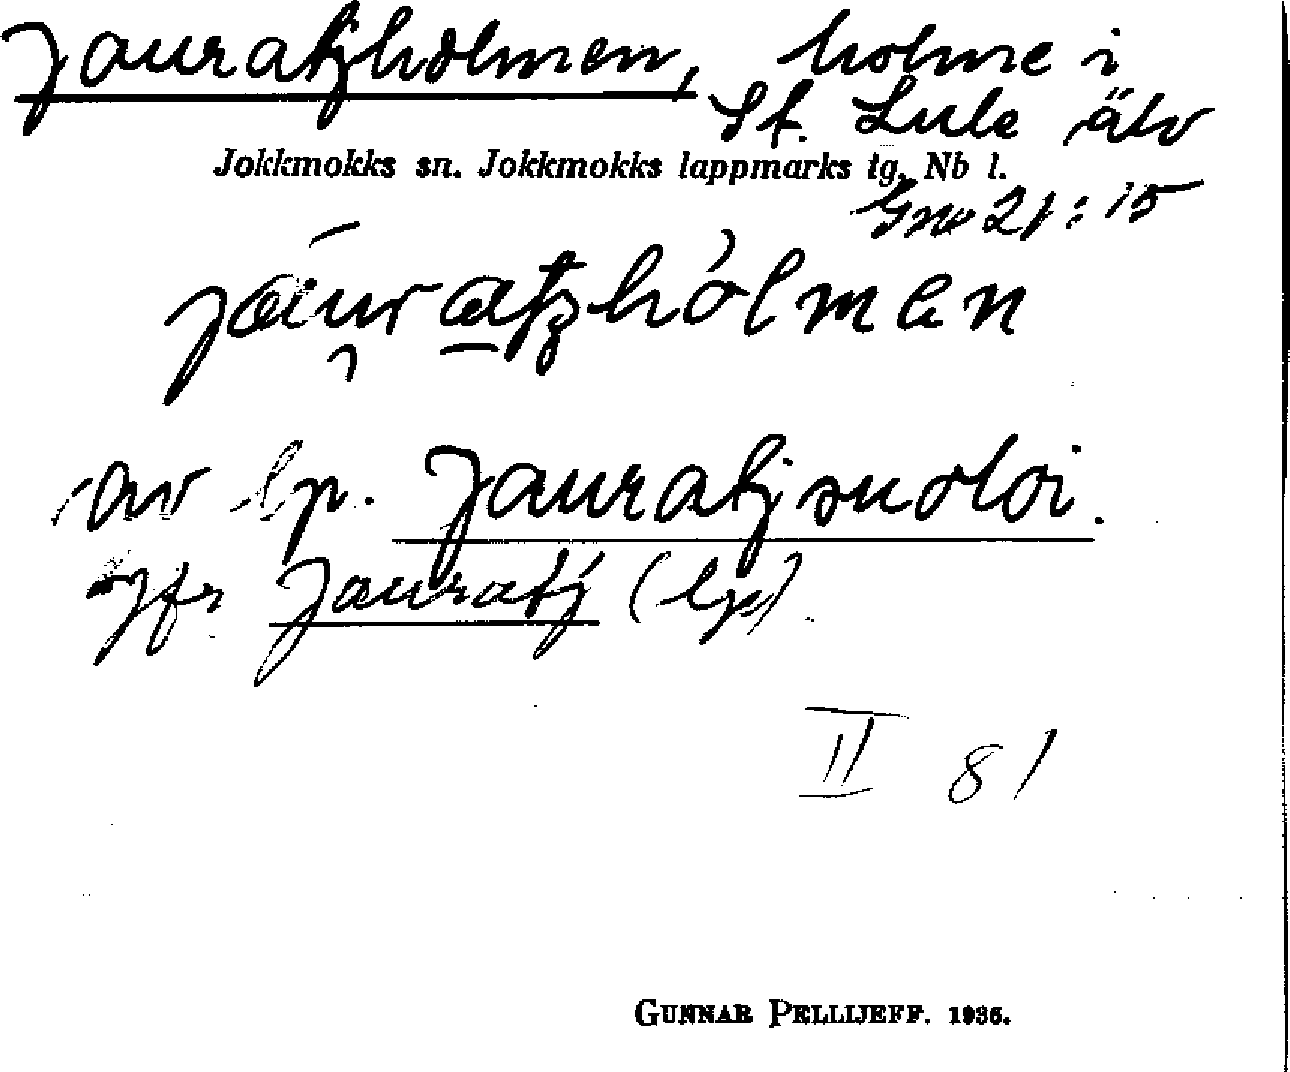 Jauratjholmen, holme i
St. Lule älv
Jokkmokks sn. Jokkmokks lappmarks tg. Nb l.
Gno 21:15
av lp. Jauratjsuoloi.
Jfr Jauratj (lp).
II 81
GUNNAR PELLIJEFF. 1936.